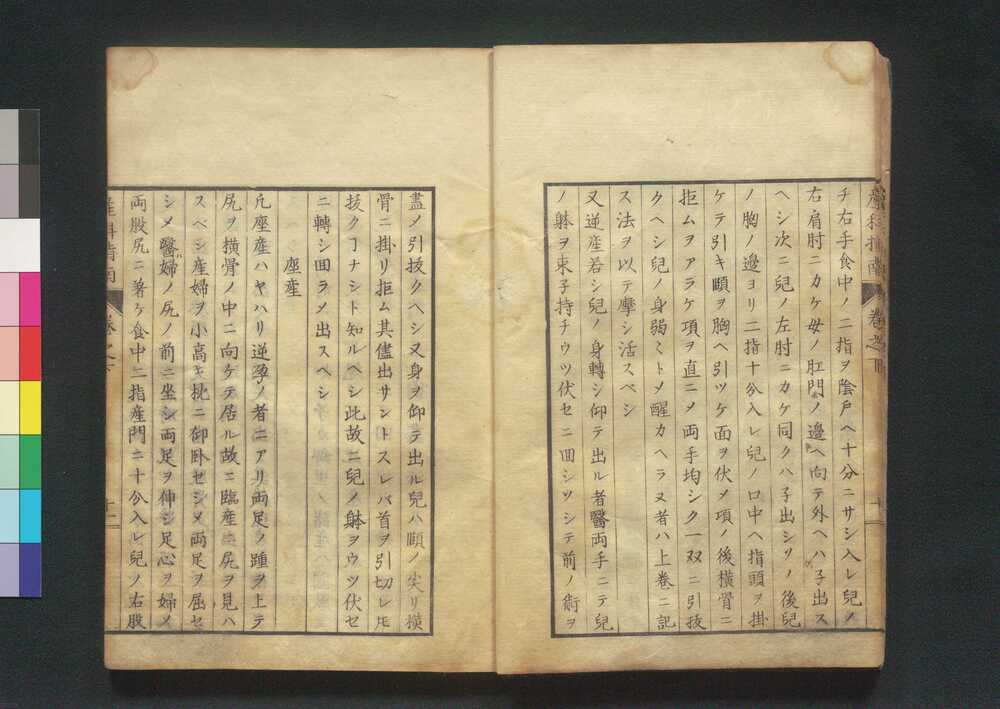 産科指南 巻之
チ右手食中ノ二指ヲ陰戸ヘ十分ニサシ入レ兒ノ
右肩肘ニカケ母ノ肛門ノ邊ヘ向テ外ヘハ子出ス
ヘシ次ニ兒ノ左肘ニカケ同クハ子出シソノ後兒
ノ胸ノ邊ヨリ二指十分入レ兒ノ口中ヘ指頭ヲ掛
ケテ引キ頤ヲ胸ヘ引ツケ面ヲ伏メ項ノ後横骨ニ
拒ムヲアラケ項ヲ直ニメ両手均シク一双ニ引抜
クヘシ兒ノ身弱くトメ醒カヘラヌ者ハ上巻ニ記
ス法ヲ以テ摩シ活スベシ
又逆産若シ兒ノ身轉シ仰テ出ル者醫両手ニテ兒
ノ躰ヲ束子持チウツ伏セニ回シツシテ前ノ術ヲ
盡メ引抜クヘシ又身ヲ仰テ出ル兒ハ頤ノ尖リ横
骨ニ掛リ拒ム其儘出サントスレバ首ヲ引切レ𪜈
抜クヿナシト知ルベシ此故ニ兒ノ躰ヲウツ伏セ
ニ轉シ回ラメ出スヘシ
座産
凢座産ハヤハリ逆孕ノ者ニアリ両足ノ踵ヲ上テ
尻ヲ横骨ノ中ニ向ケテ居ル故ニ臨産ニ尻ヲ見ハ
スベシ産婦ヲ小高キ枕ニ仰卧セシメ両足ヲ屈セ
シメ醫婦ノ尻ノ前ニ坐シ両足ヲ伸シ足心ヲ婦ノ
両股尻ニ著ケ食中二指産門ニ十分入レ兒ノ右股
産科指南 巻之下 十一